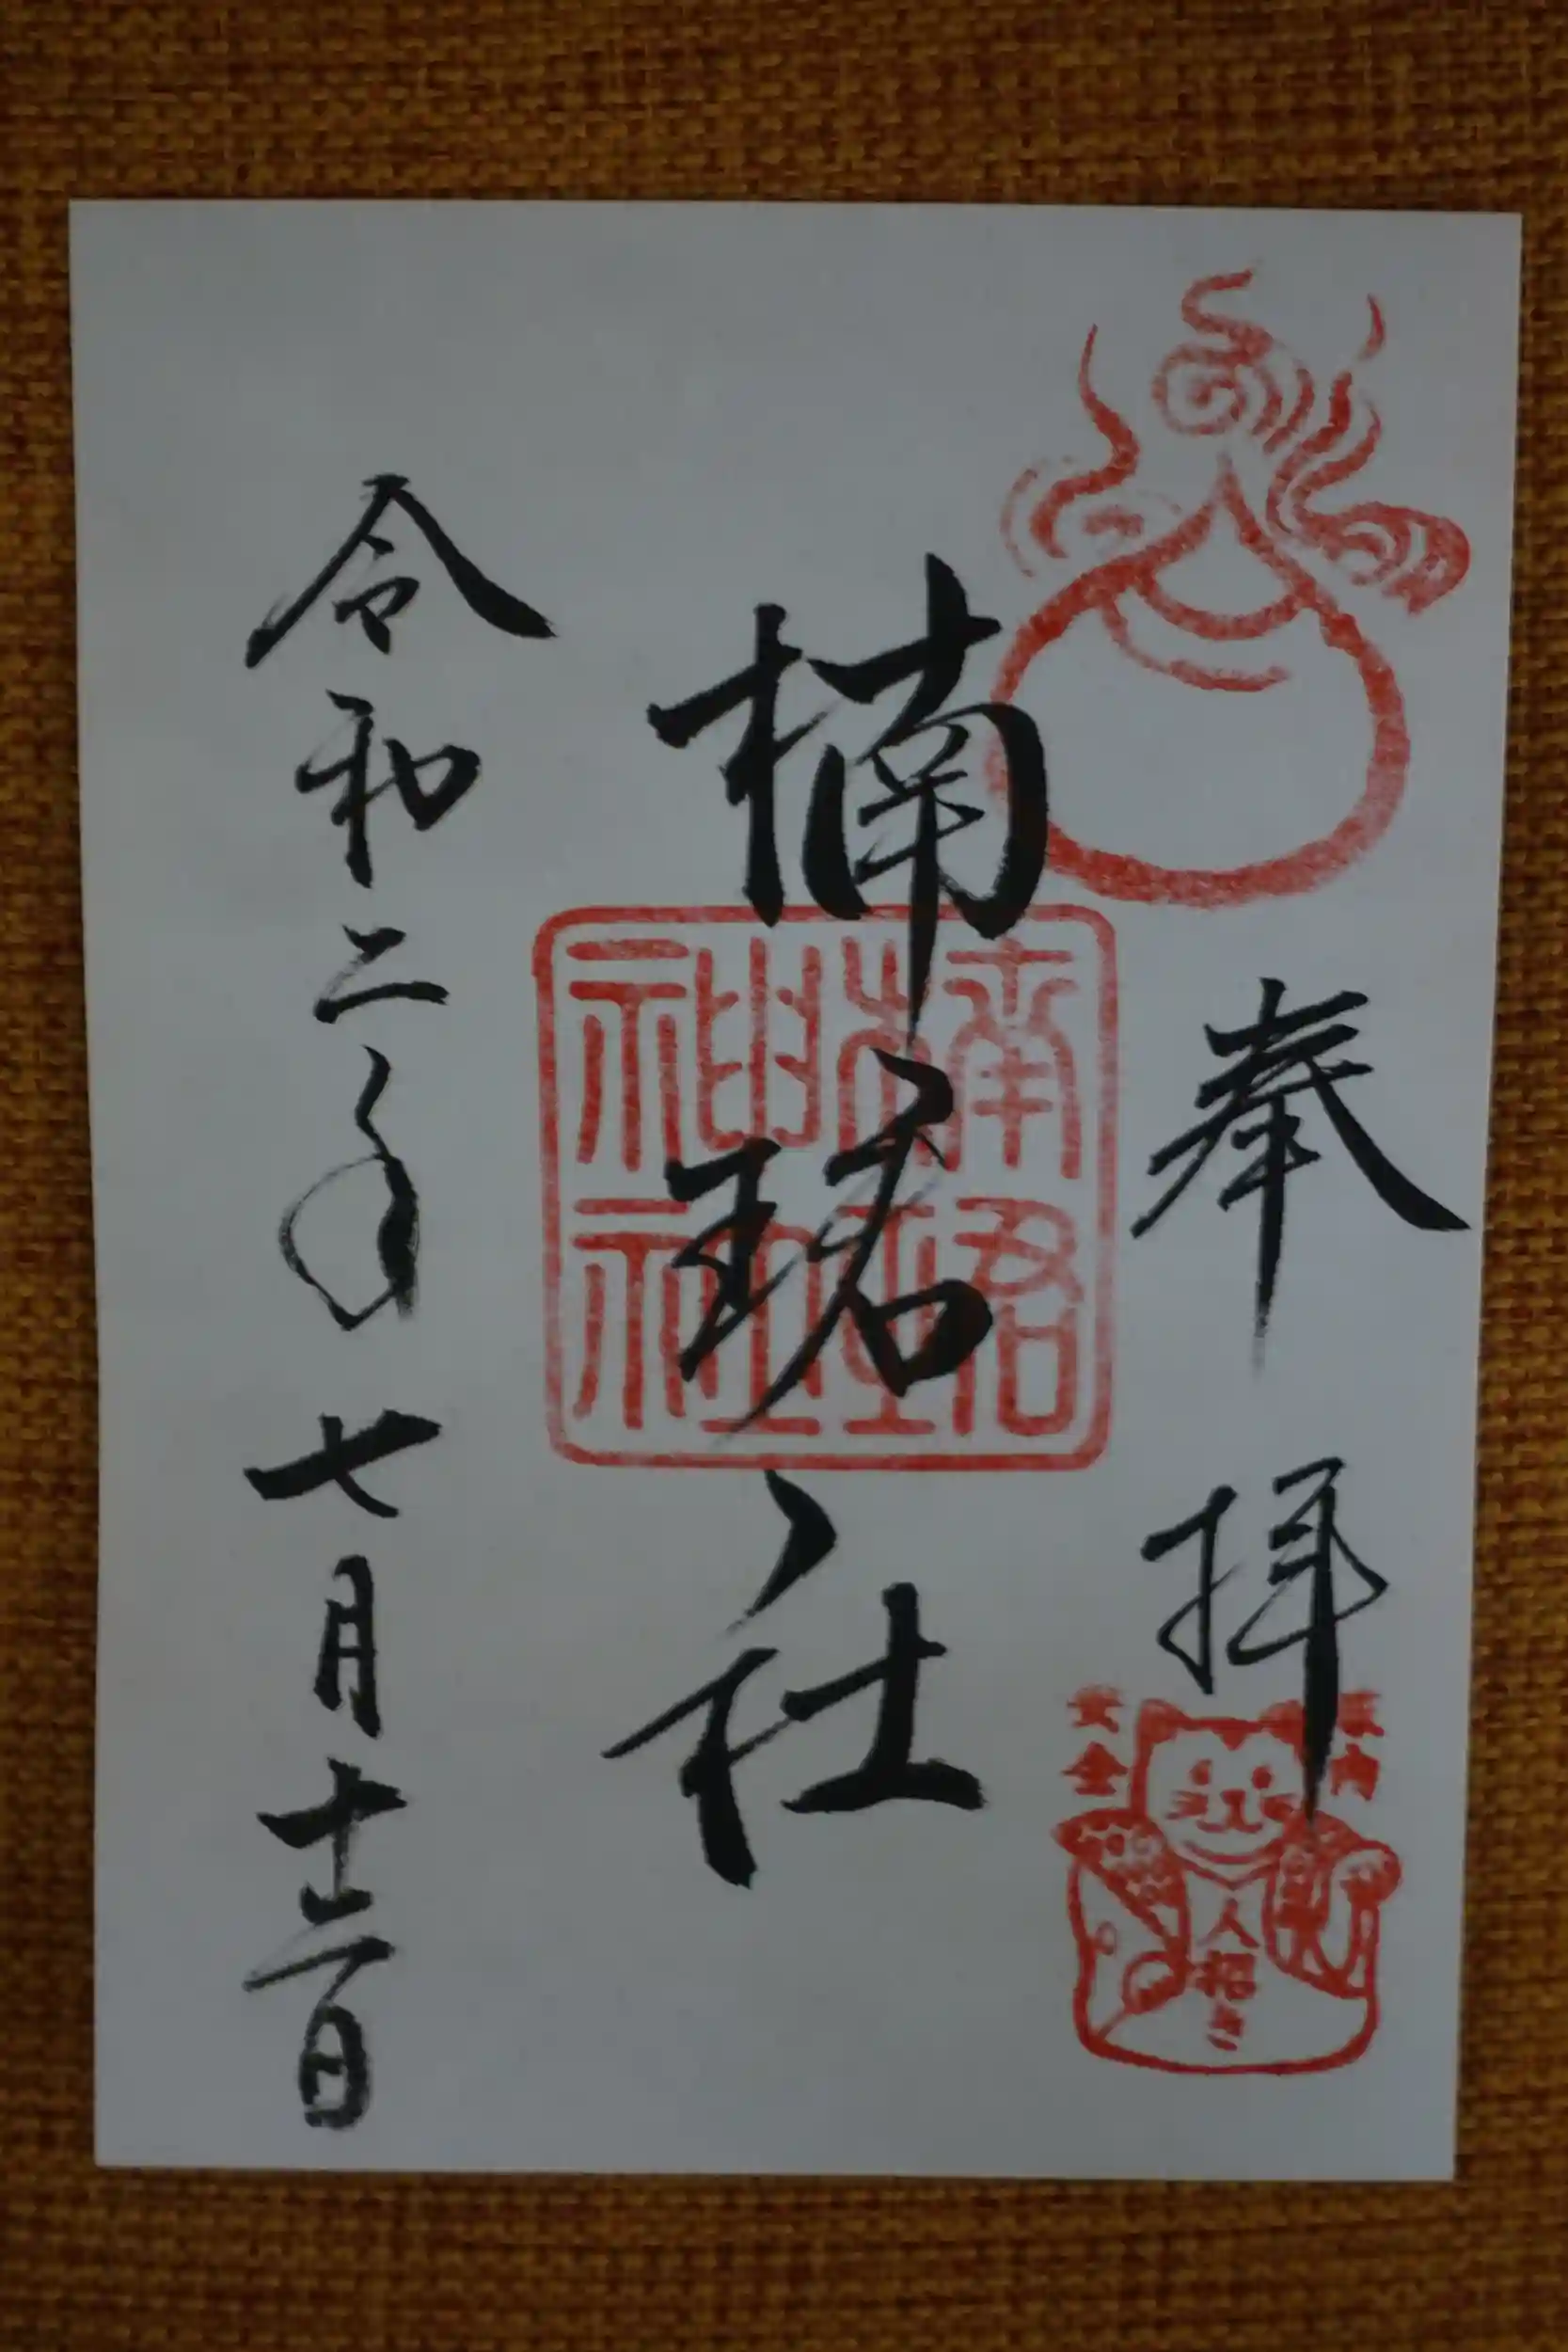 奉拝
家内
安全
人招き
楠珺社
楠珺
神社
令和二年七月十二日